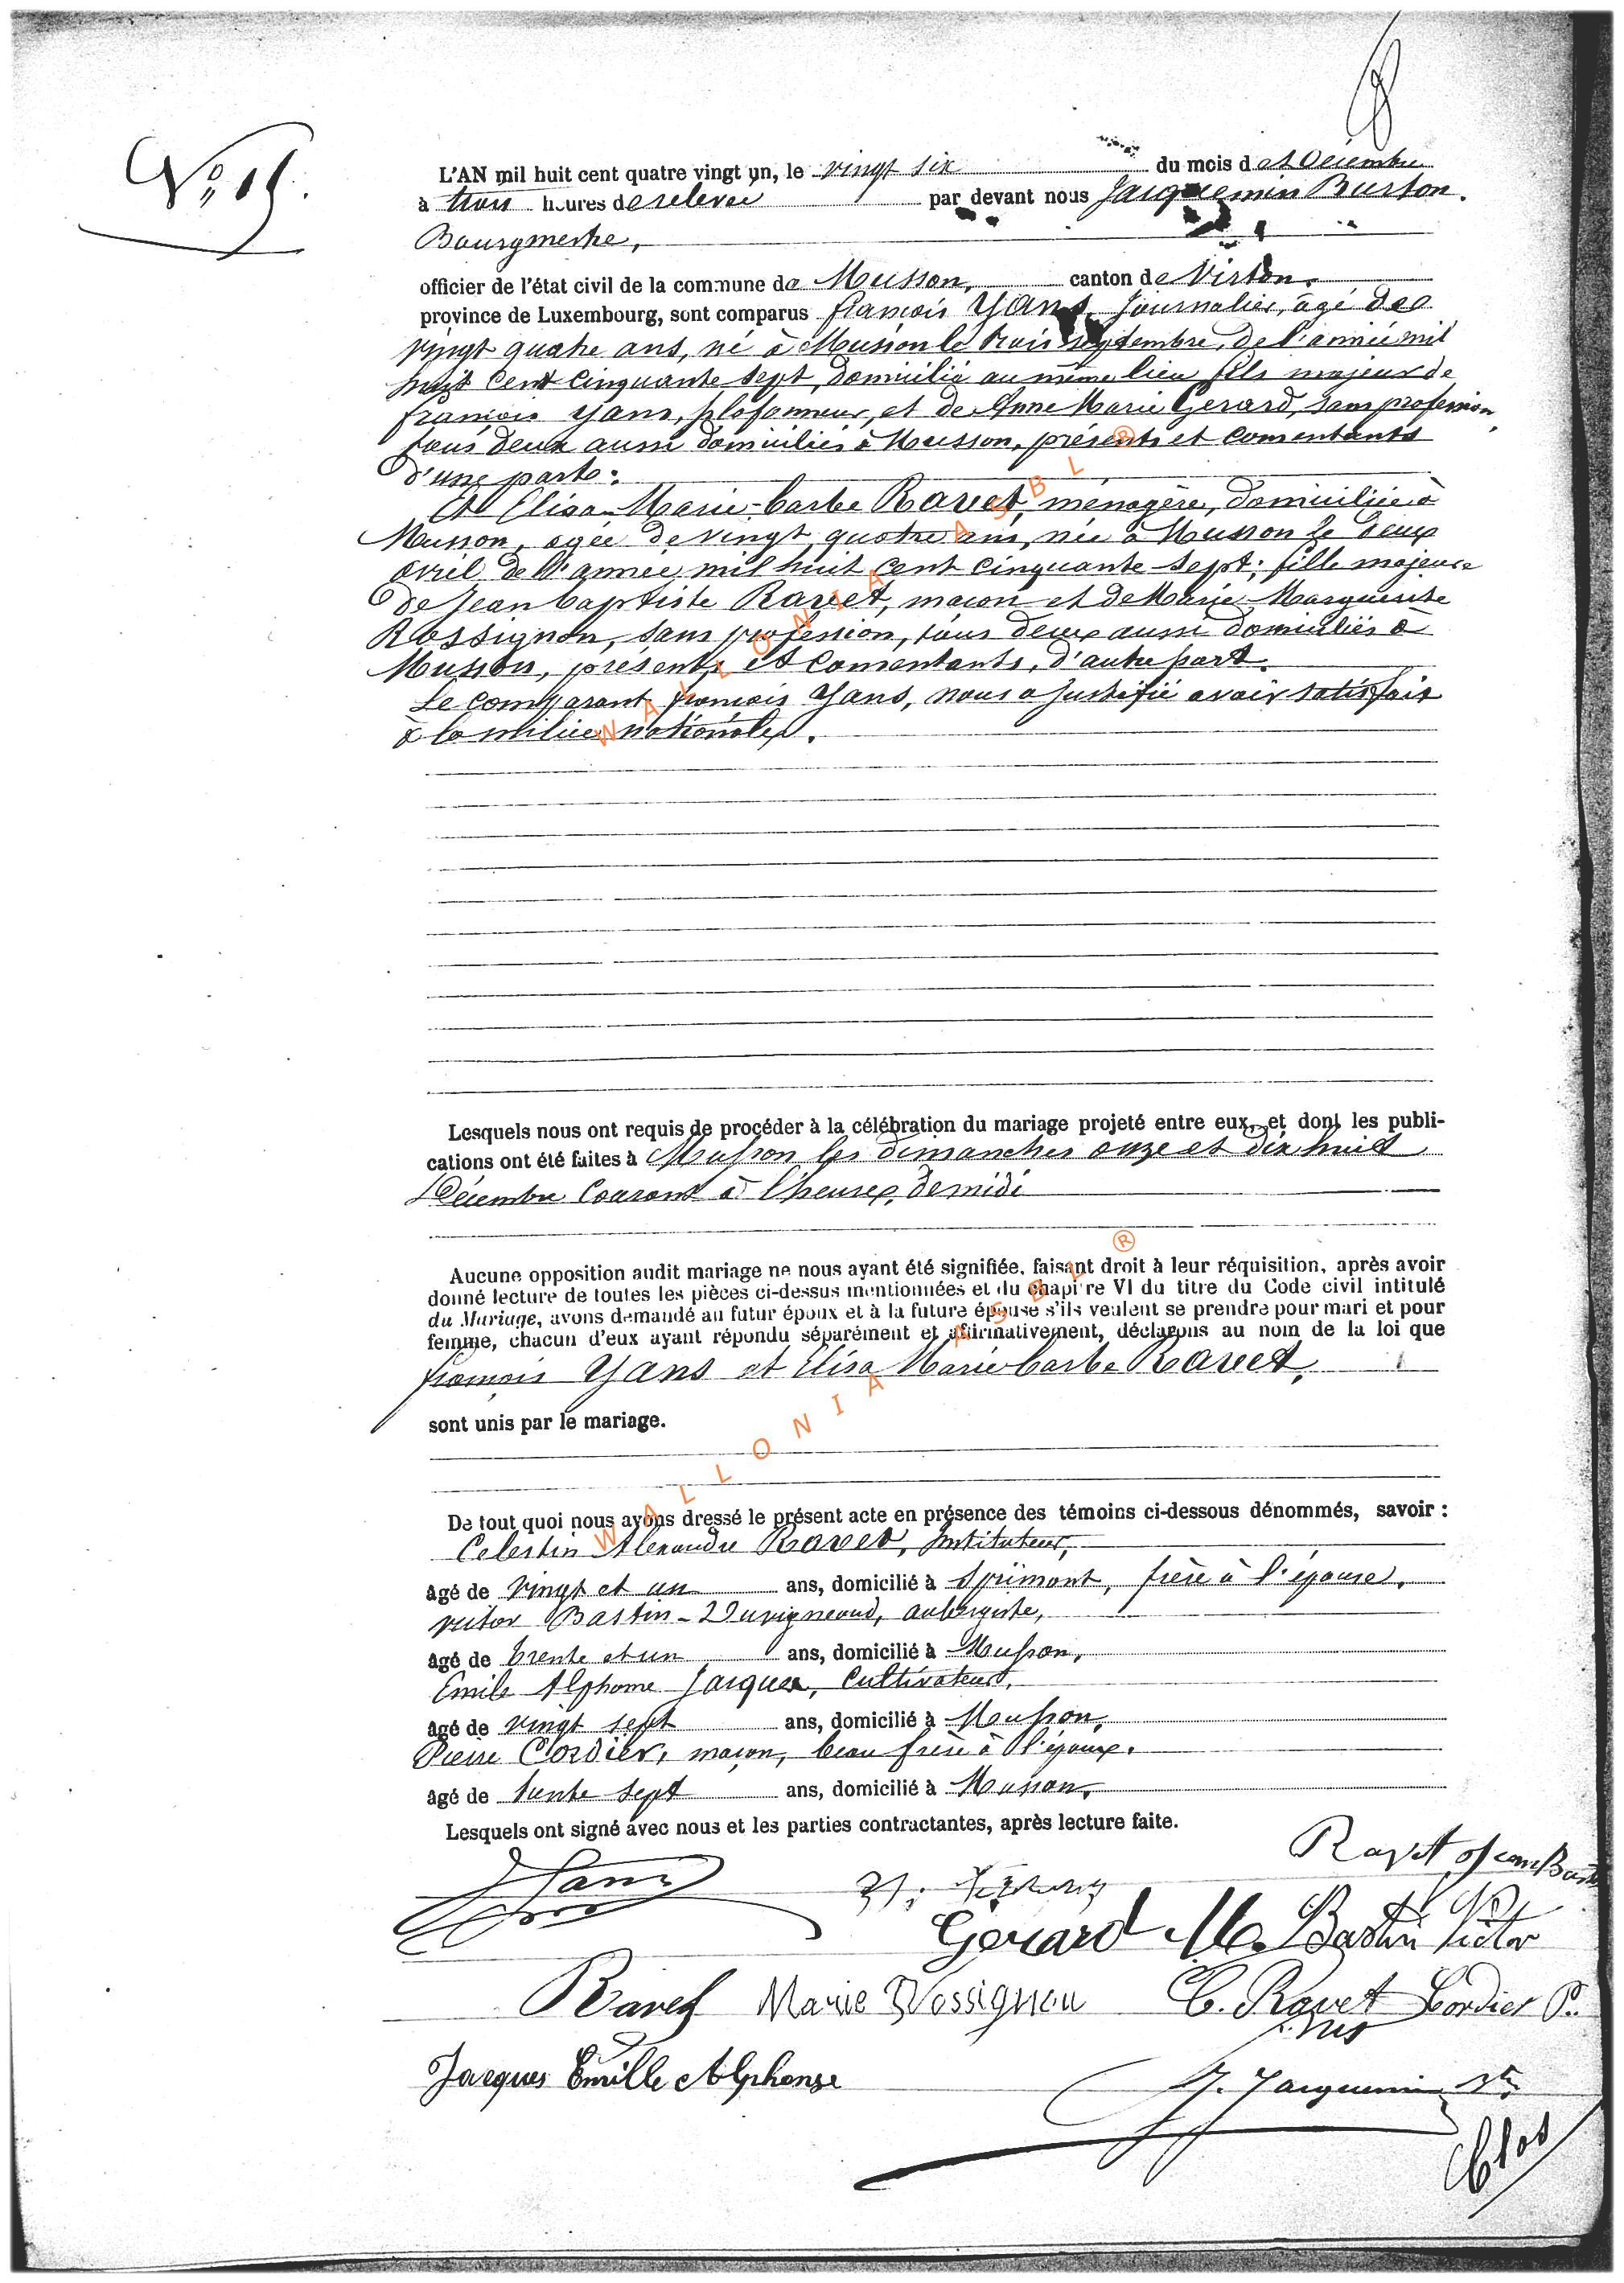 N° 15.
L'AN mil huit cent quatre vingt un, le vingt six du mois de Décembre
à trois heures de relevée par devant nous Jacquemin Burton.
Bourgmestre,
officier de l'état civil de la commune de Musson, canton de Virton.
province de Luxembourg, sont comparus françois Yans, Journalier, âgé de
vingt quatre ans, né à Musson le trois septembre, de l'année mil
huit cent cinquante sept, domicilié au même lieu fils majeur de
françois Yans, plafonneur, et de Anne Marie Gerard, sans profession,
tous deux aussi domiciliés à Musson, présents et consentants
d'une part:
Et Elisa-Marie-barbe Ravet, ménagère, domiciliée à
Musson, agée de vingt quatre ans, née à Musson le deux
avril de l'année mil huit cent cinquante sept; fille majeure
de Jean baptiste Ravet, macon et de Marie Marguerite
Rossignon, sans profession, tous deux aussi domiciliés à
Musson, présents et consentants, d'autre part.
Le comparant françois Yans, nous a justifié avoir satisfait
à la milice nationale.
Lesquels nous ont requis de procéder à la célébration du mariage projeté entre eux, et dont les publi-
cations ont été faites à Musson les dimanches onze et dix huit
Décembre courant à l'heure de midi
Aucune opposition audit mariage ne nous ayant été signifiée, faisant droit à leur réquisition, après avoir
donné lecture de toutes les pièces ci-dessus mentionnées et du chapitre VI du titre du Code civil intitulé
du Mariage, avons demandé au futur époux et à la future épouse s'ils veulent se prendre pour mari et pour
femme, chacun d'eux ayant répondu séparément et affirmativement, déclarons au nom de la loi que
françois Yans et Elisa Marie barbe Ravet,
sont unis par le mariage.
De tout quoi nous avons dressé le présent acte en présence des témoins ci-dessous dénommés, savoir :
Celestin Alexandre Ravet, Instituteur,
âgé de vingt et un ans, domicilié à Sprimont, frère à l'épouse,
victor Bastin-Duvigneaud, aubergiste,
âgé de trente et un ans, domicilié à Musson,
Emile Alphonse Jacques, Cultivateur,
âgé de vingt sept ans, domicilié à Musson,
Pierre Cordier, maçon, beau frère à l'époux.
âgé de trente sept ans, domicilié à Musson,
Lesquels ont signé avec nous et les parties contractantes, après lecture faite.
Ravet Jean Bart
Yans
Gerard M. Bastin Victor
Ravet Marie Rossignon C. Ravet Cordier P.
Jacques Emille Alphonse J. Jacquemin
Clos
WALLONIA ASBL ®
WALLONIA ASBL ®